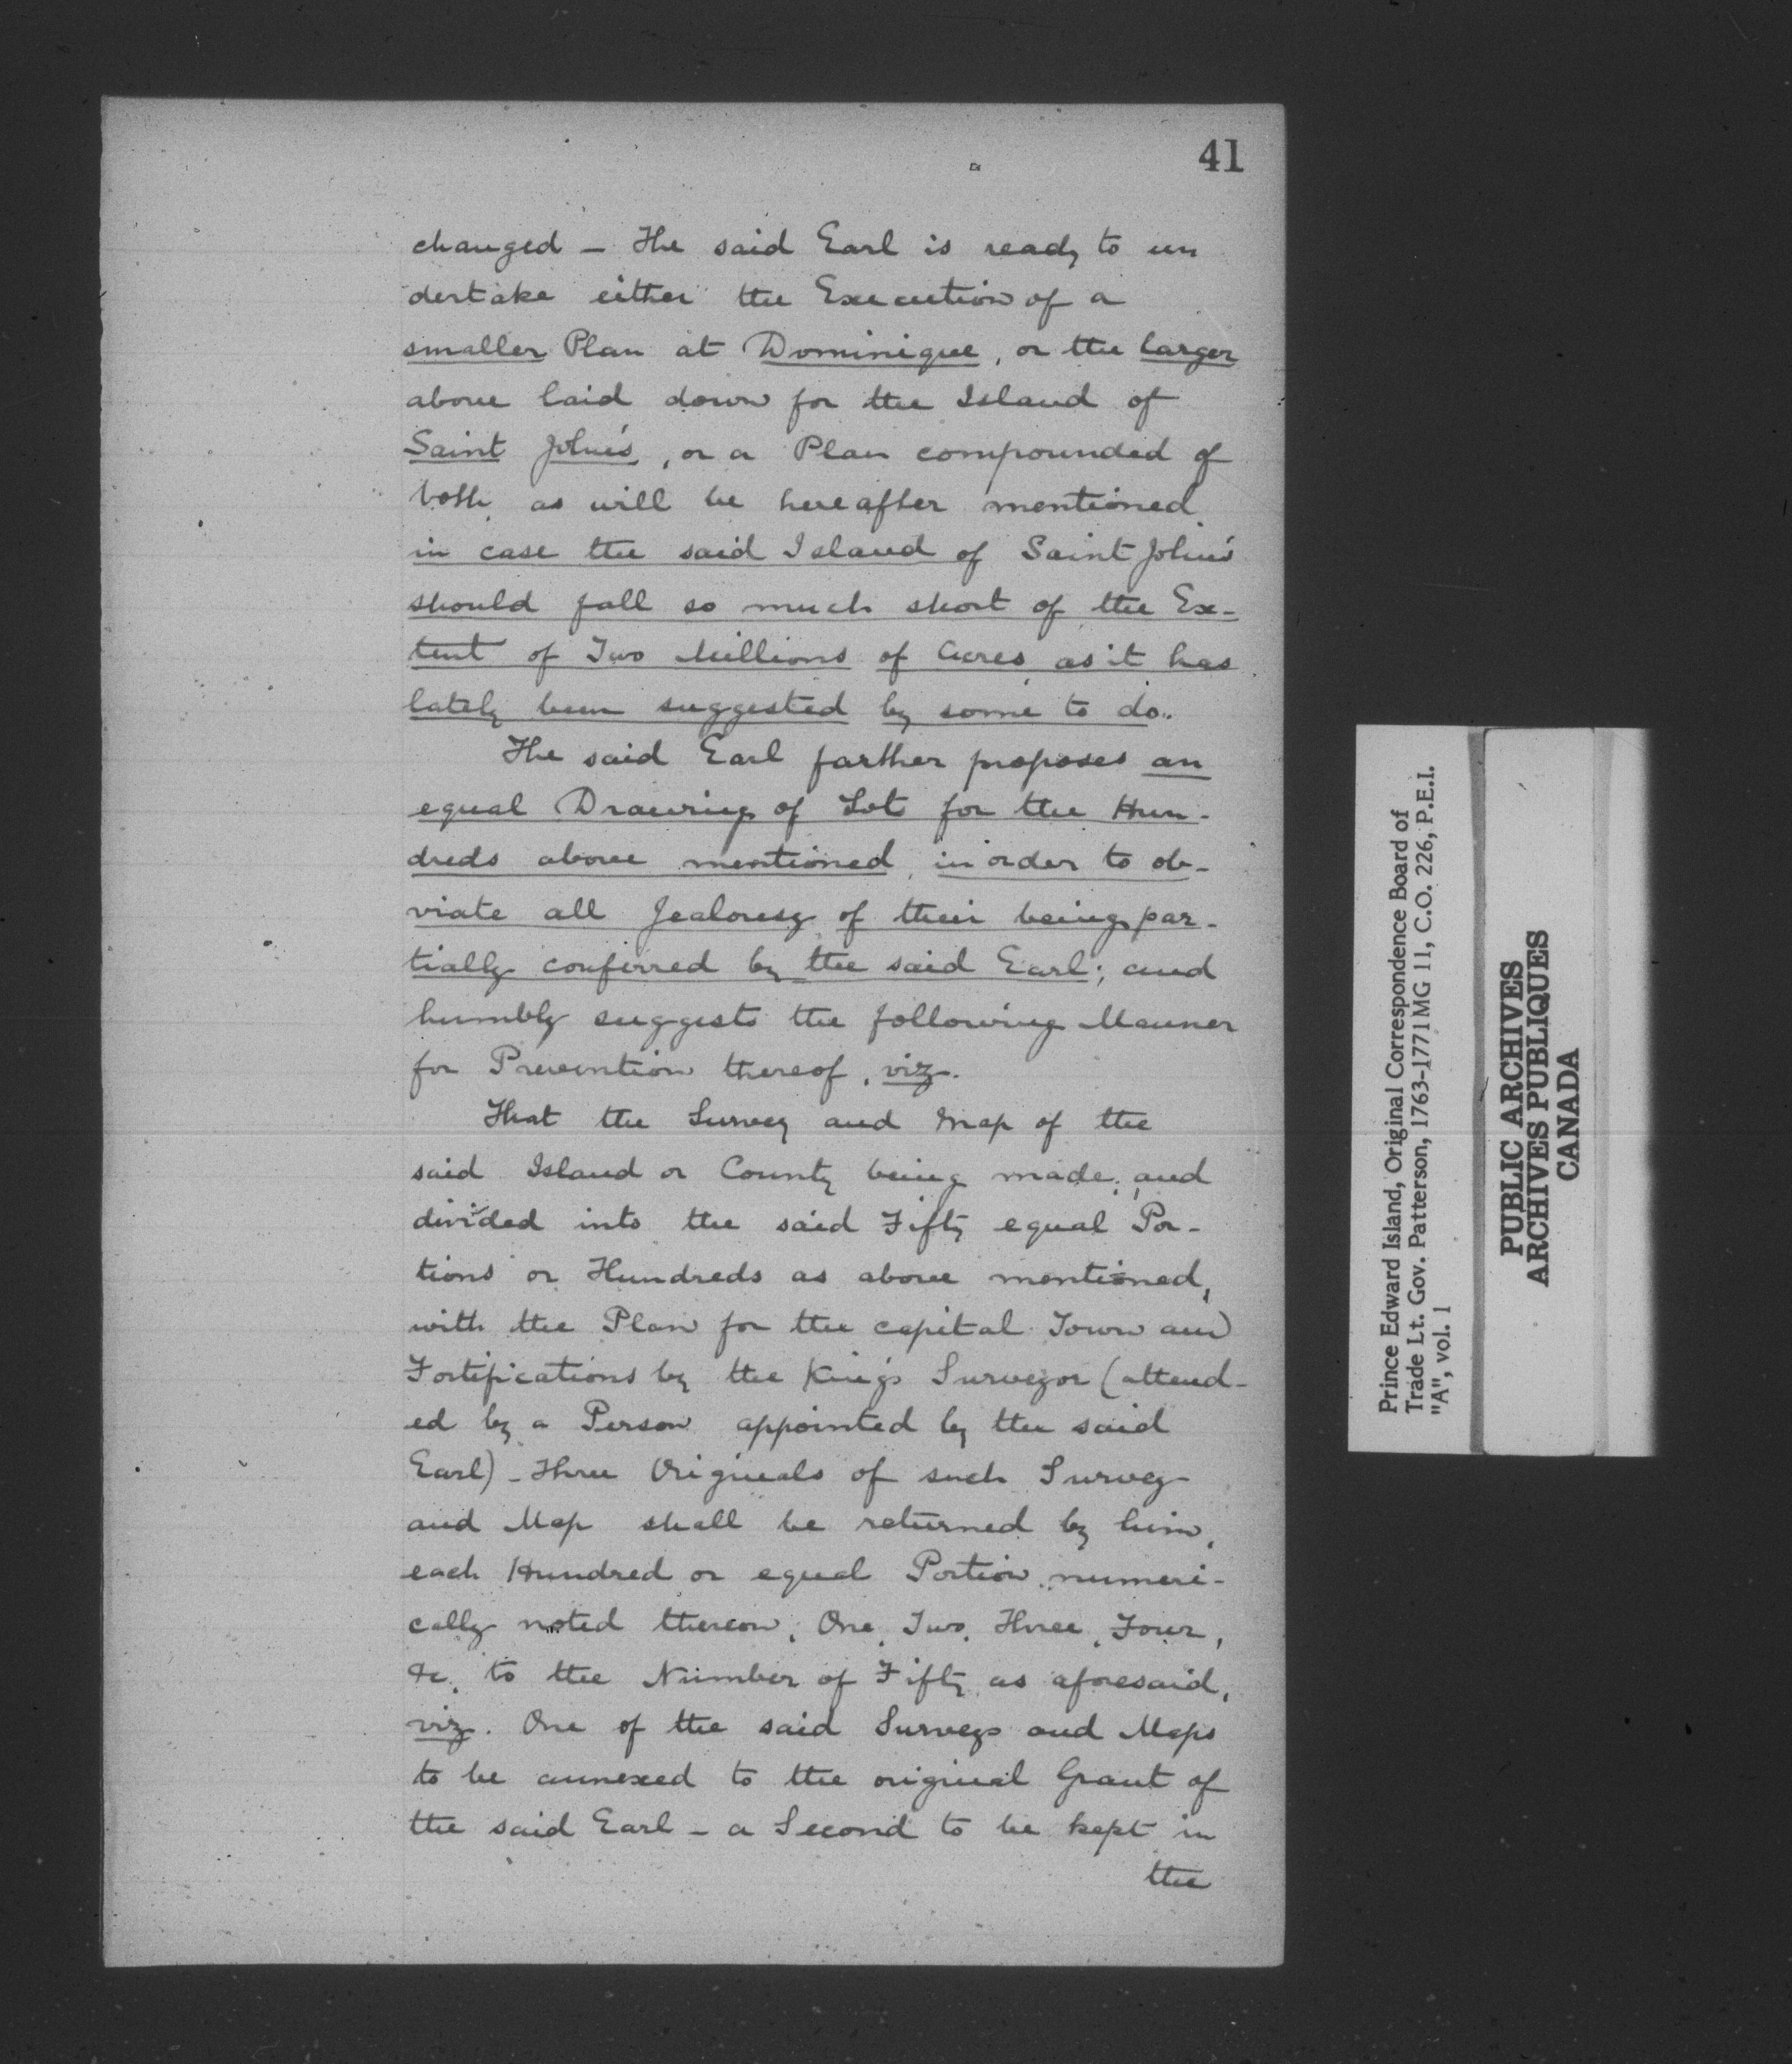 41
changed – The said Earl is ready to un
dertake either the Execution of a
smaller Plan at Dominique, or the larger
above laid down for the Island of
Saint John's, or a Plan compounded of
both, as will be hereafter mentioned,
in case the said Island of Saint John's
should fall so much short of the Ex-
tent of Two Millions of Acres, as it has
lately been suggested by some to do.
The said Earl farther proposes an
equal Drawing of Lot for the Hun-
dreds above mentioned, in order to ob-
viate all Jealousy of their being par-
tially conferred by the said Earl; and
humbly suggests the following Manner
for Prevention thereof, viz.
That the Survey and Map of the
said Island or County being made, and
divided into the said Fifty equal Por-
tions or Hundreds as above mentioned,
with the Plan for the capital Town and
Fortifications by the King's Surveyor (attend-
ed by a Person appointed by the said
Earl) – Three Originals of such Survey
and Map shall be returned by him,
each Hundred or equal Portion numeri-
cally noted thereon, One, Two, Three, Four,
&c. to the Number of Fifty as aforesaid,
viz. One of the said Surveys and Maps
to be annexed to the original Grant of
the said Earl – a Second to be kept in
the
Prince Edward Island, Original Correspondence Board of
Trade Lt. Gov. Patterson, 1763-1771 MG 11, C.O. 226, P.E.I.
"A", vol. 1
PUBLIC ARCHIVES
ARCHIVES PUBLIQUES
CANADA